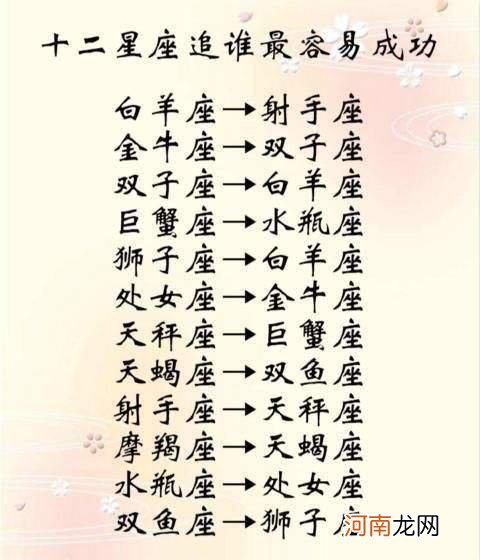 十二星座追谁最容易成功
白羊座→射手座
金牛座→双子座
双子座→白羊座
巨蟹座→水瓶座
狮子座→白羊座
处女座→金牛座
天秤座→巨蟹座
天蝎座→双鱼座
射手座→天秤座
摩羯座→天蝎座
水瓶座→处女座
双鱼座→狮子座
河南龙网